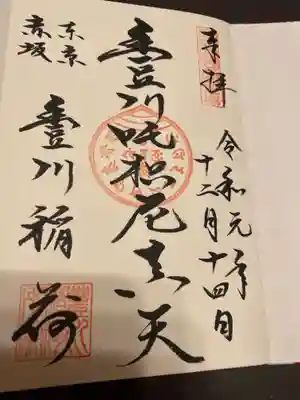 奉拝
令和元年
十二月十四日
豊川吒枳尼真天
東京
赤坂
豊川稲荷